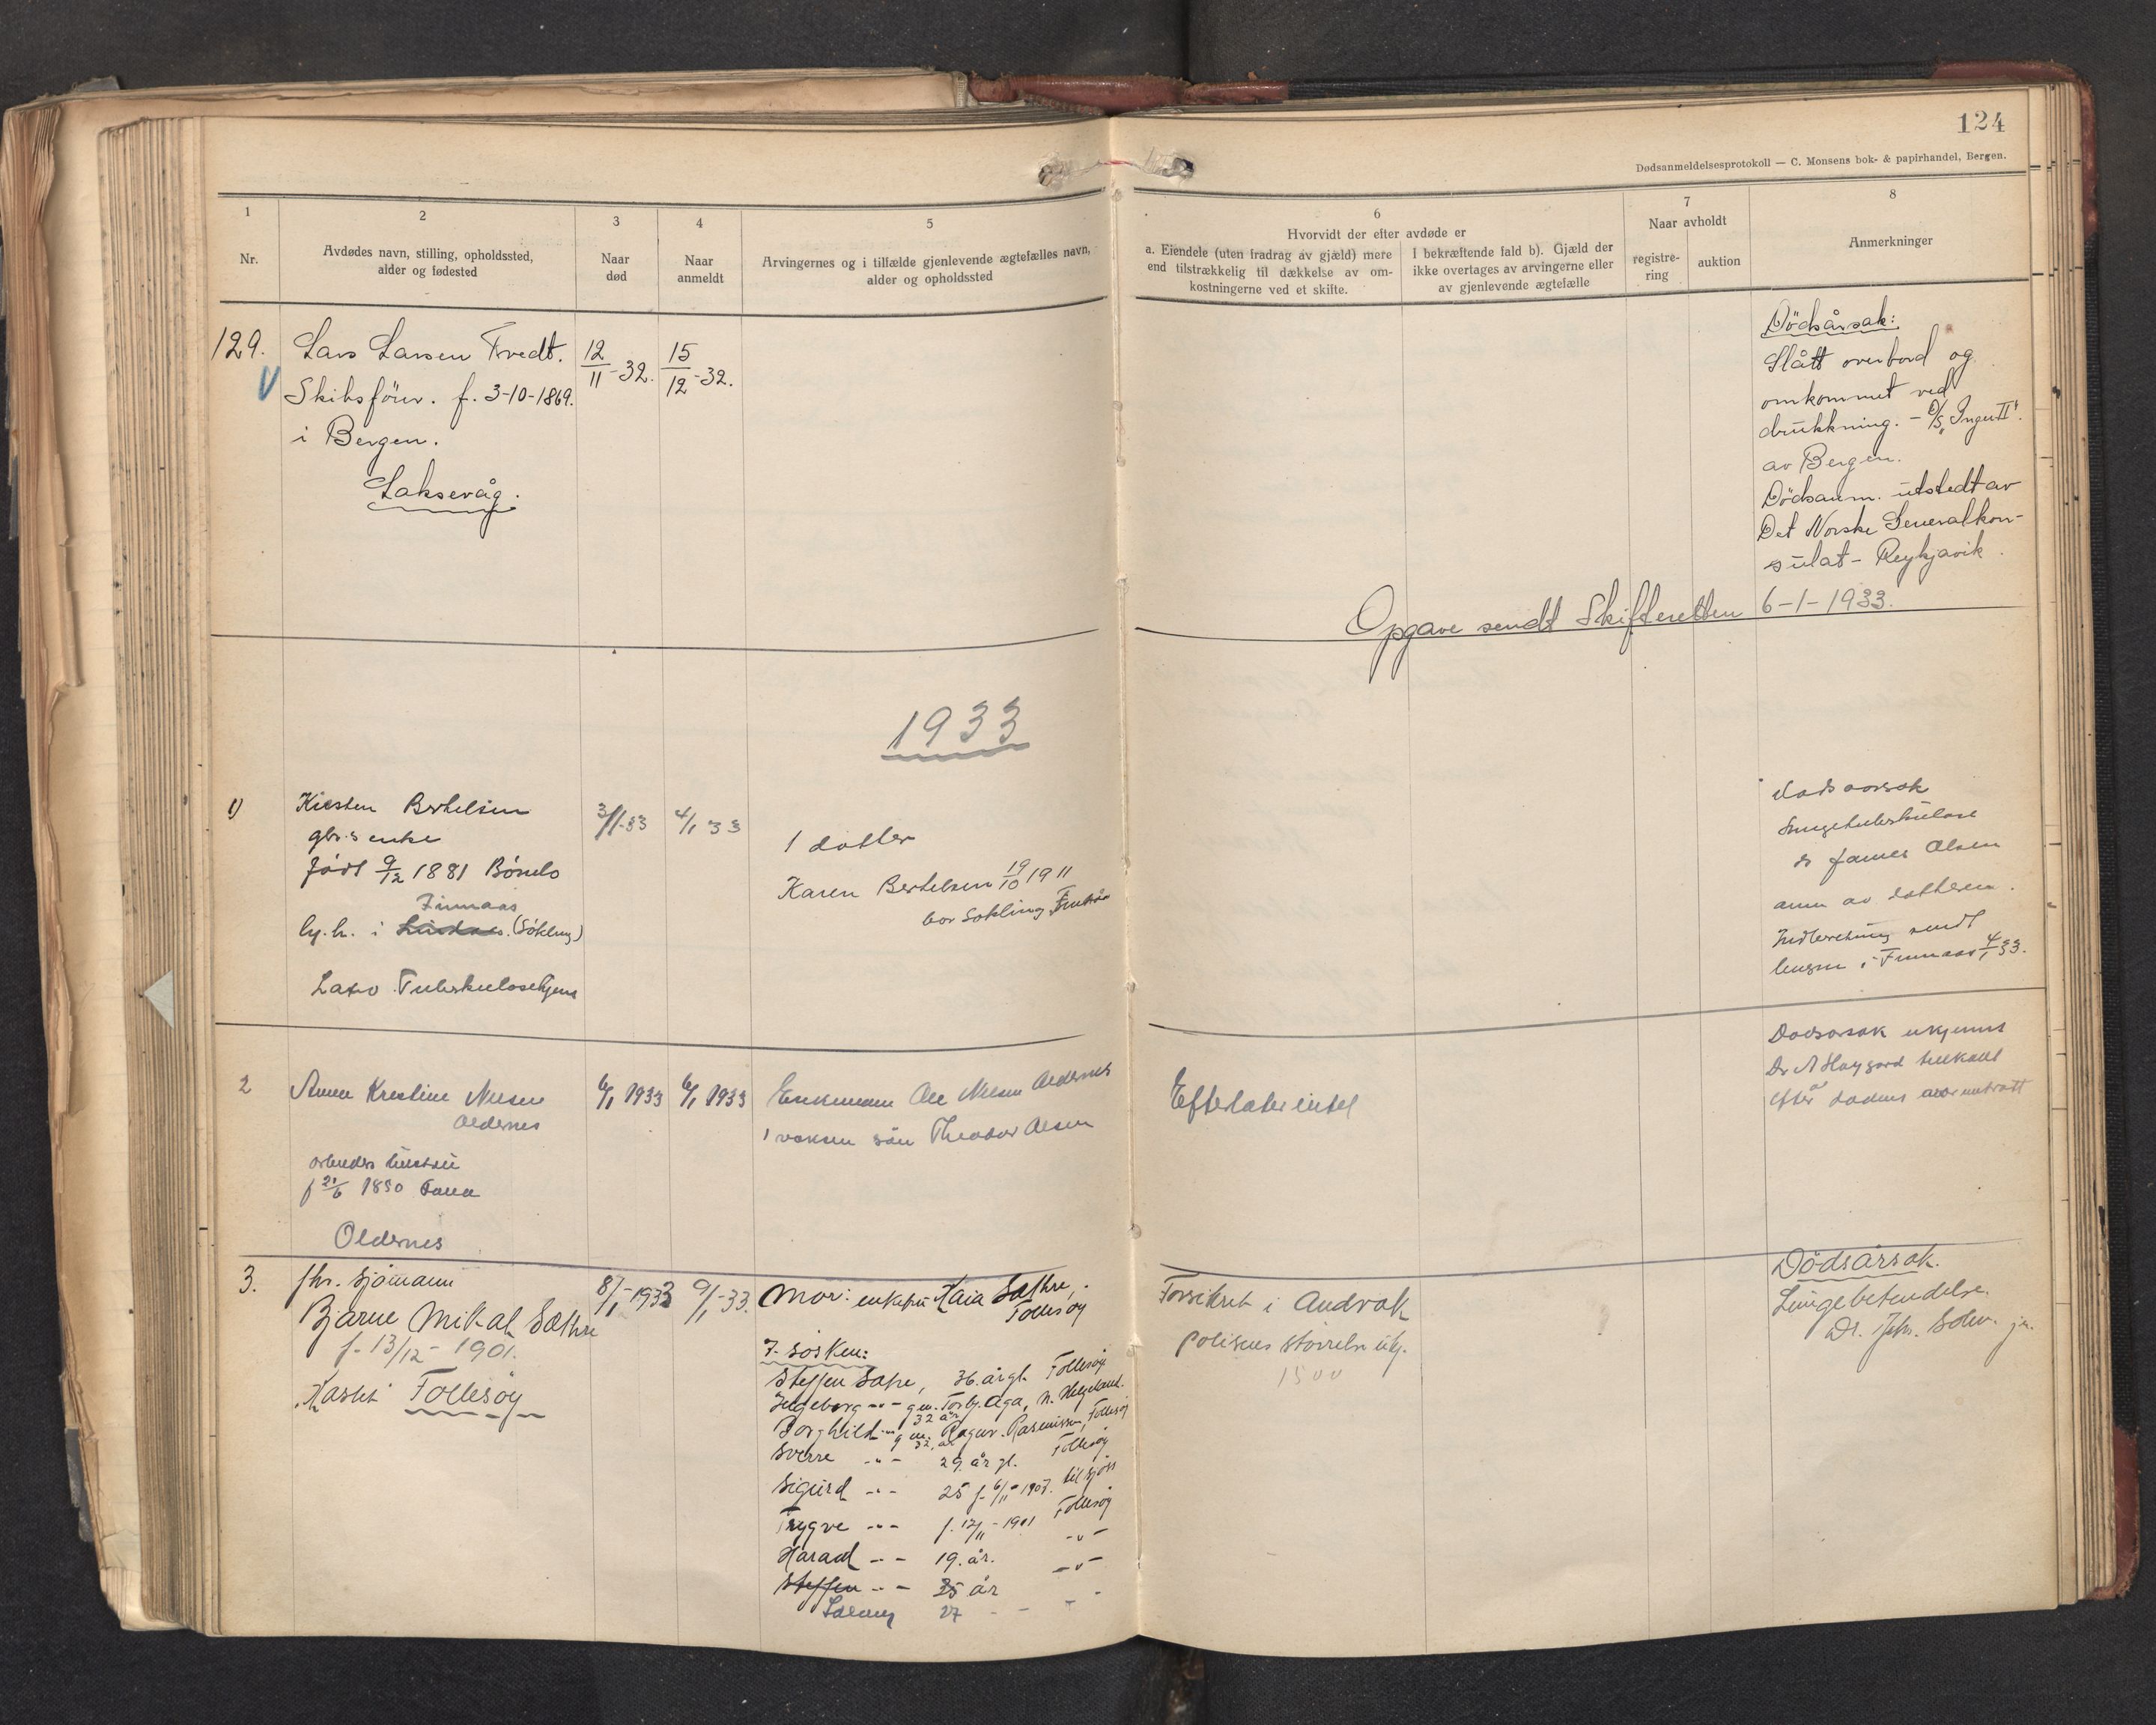 124
Dødsanmeldelsesprotokoll — C. Monsens bok- & papirhandel, Bergen.
1
Nr.
2
Avdødes navn, stilling, opholdssted,
alder og fødested
3
Naar
død
4
Naar
anmeldt
5
Arvingernes og i tilfælde gjenlevende ægtefælles navn,
alder og opholdssted
6
Hvorvidt der efter avdøde er
a. Eiendele (uten fradrag av gjæld) mere
end tilstrækkelig til dækkelse av om-
kostningerne ved et skifte.
I bekræftende fald b). Gjæld der
ikke overtages av arvingerne eller
av gjenlevende ægtefælle
7
Naar avholdt
registre-
ring
auktion
8
Anmerkninger
129.
Lars Larsen Tvedt.
Skibsfører. f. 3-10-1869.
i Bergen.
Laksevåg.
12/11-32.
15/12-32.
Dödsårsak:
Slått overbord og
omkommet ved
drukkning. - D/S "Inger II"
av Bergen.
Dödsanm. utstedt av
Det Norske Generalkon-
sulat - Reykjavik.
Opgave sendt Skifteretten 6-1-1933.
1933
1)
Kirsten Bertelsen
gbr.s enke
Född 9/12 1881 Bömlo
Finnaas
hj.h. i (Sökling)
Tuberkulosehjem
3/1-33
4/1 33
1 datter
Karen Bertelsen 19/10 1911
bor Sokling Finnås
Dødsaarsak
Lungetuberkulose
dr James Olsen
anm av datteren.
Indberetning sendt
lensm i Finnaas 4/1 33.
2
Anna Kristine Nilsen
Oldernes
arbeiders hustru
f 21/6 1850 Fana
Oldernes
6/1 1933
6/1 1933
Enkemann Ole Nilsen Oldernes
1 voksen sön Theodor Olsen
Efterlater intet
Dødsorsak ukjennt
Dr A Høygård tilkalt
efter at dødens var inntrått
3.
fhv. Sjömann
Bjarne Mikal Sæthre
f. 13/12 - 1901.
Follesøy
8/1-1933
9/1-33.
Mor: enkefru Kaia Sæthre,
Follesøy
7. søsken:
Steffen Sætre, 36. år gl. Follesøy
Ingeborg -"- g.m. Torbj. Aga, N. Helgeland.
32 år
Borghild -"- g.m. Ragnv. Rasmussen, Follesøy
32, år
Sverre -"- 29. år gl. Follesøy
Sigurd -"- 25 f. 6/11-1907. til sjøss
Trygve -"- f. 12/11-1911 Follesøy
Harald -"- 19. år. -"-
Steffen -"- 35 år -"-
27 - - -
Forsikret i Andvak
polisens størrelse ukj.
1500
Dödsårsak.
Lungebetendelse.
Dr. Joh. Solv. jr.